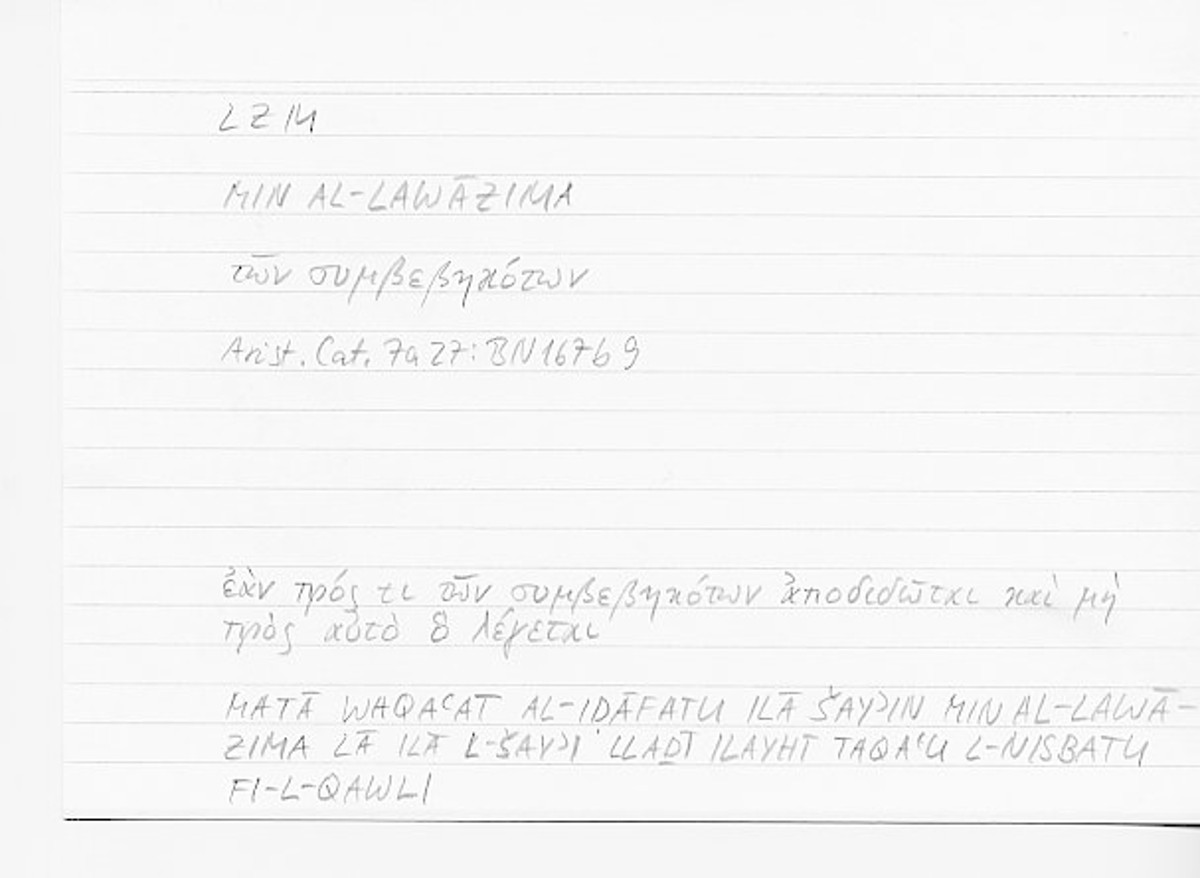 LZM
MIN AL-LAWĀZIMA
τῶν συμβεβηκότων
Arist. Cat. 7a27: BN 167b9
ἐὰν πρός τι τῶν συμβεβηκότων ἀποδιδῶται καὶ μὴ
πρὸς αὐτὸ ὃ λέγεται
MATĀ WAQAʿAT AL-IḌĀFATU ILĀ ŠAYʾIN MIN AL-LAWĀ-
ZIMA LĀ ILĀ L-ŠAYʾI LLAḎĪ ILAYHI TAQAʿU L-NISBATU
FI-L-QAWLI